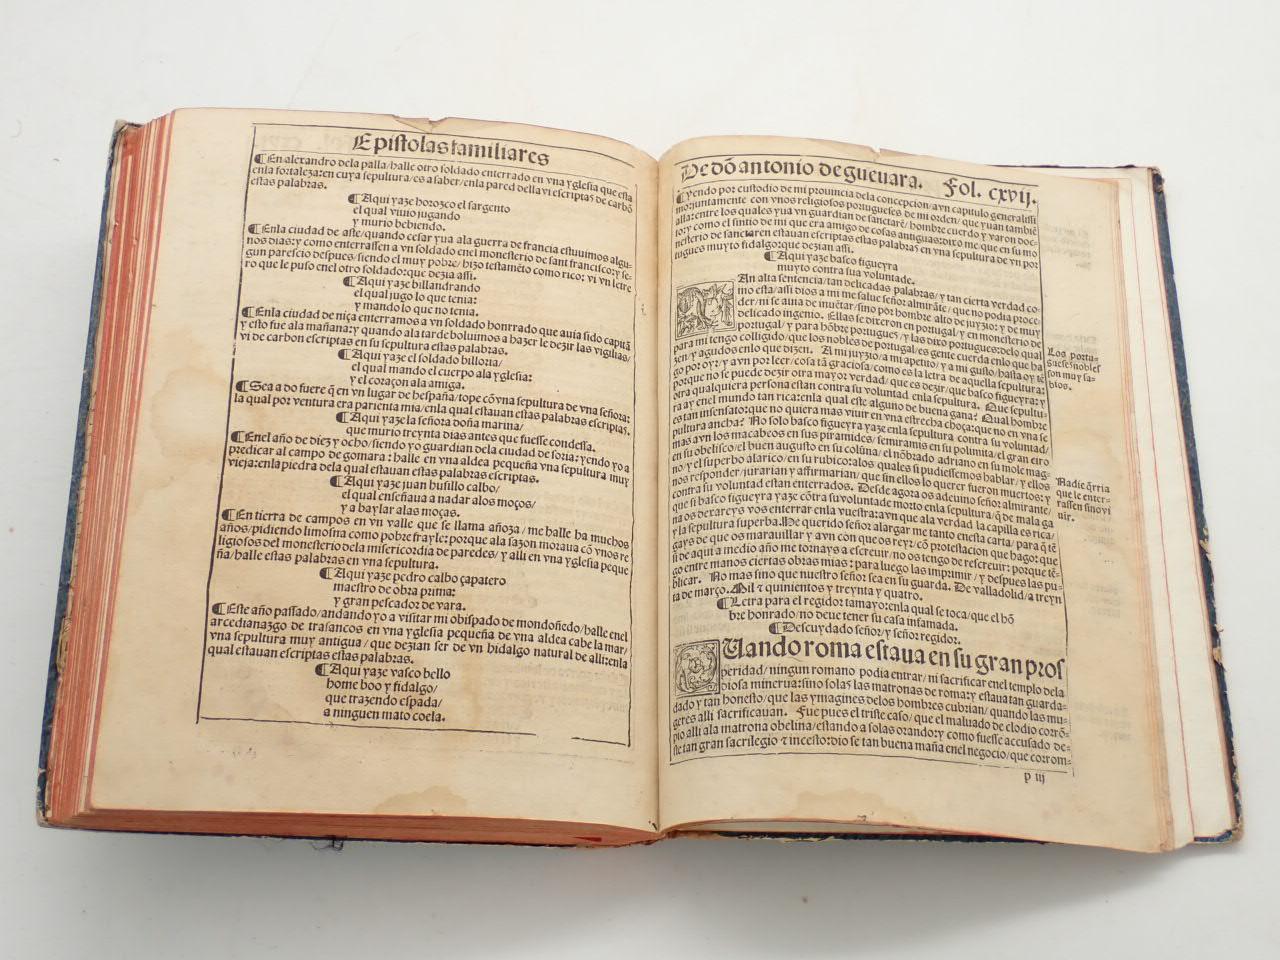 Epistolas familiares
¶ En alexandro dela palla/halle otro soldado enterrado en vna yglesia que esta
enla fortaleza:en cuya sepultura/es a saber/enla pared della vi escriptas de carbō
estas palabras.
¶ Aqui yaze horozco el sargento
el qual viuio jugando
y murio bebiendo.
¶ Enla ciudad de aste/quando cesar yua ala guerra de francia estuuimos algu-
nos dias:y como enterrassen a vn soldado enel monesterio de sant francisco:y se-
gun parescio despues/siendo el muy pobre/hizo testamēto como rico: vi vn letre
ro que le puso enel otro soldado:que dezia assi.
¶ Aqui yaze billandrando
el qual jugo lo que tenia:
y mando lo que no tenia.
¶ Enla ciudad de niça enterramos a vn soldado honrrado que auia sido capitā
y esto fue ala mañana:y quando ala tarde boluimos a hazer le dezir las vigilias/
vi de carbon escriptas en su sepultura estas palabras.
¶ Aqui yaze el soldado billoria/
el qual mando el cuerpo ala yglesia:
y el coraçon ala amiga.
¶ Sea a do fuere q̄ en vn lugar de hespaña/tope cō vna sepultura de vna señora:
la qual por ventura era parienta mia/enla qual estauan estas palabras escriptas.
¶ Aqui yaze la señora doña marina/
que murio treynta dias antes que fuesse condessa.
¶ Enel año de diez y ocho/siendo yo guardian dela ciudad de soria:yendo yo a
predicar al campo de gomara:halle en vna aldea pequeña vna sepultura muy
vieja:enla piedra dela qual estauan estas palabras escriptas.
¶ Aqui yaze juan husillo calbo/
el qual enseñaua a nadar alos moços/
y a baylar alas moças.
¶ En tierra de campos en vn valle que se llama añoza/me halle ha muchos
años/pidiendo limosna como pobre frayle:porque ala sazon moraua cō vnos re
ligiosos del monesterio dela misericordia de paredes/y alli en vna yglesia peque
ña/halle estas palabras en vna sepultura.
¶ Aqui yaze pedro calbo çapatero
maestro de obra prima:
y gran pescador de vara.
¶ Este año passado/andando yo a visitar mi obispado de mondoñedo/halle enel
arcedianazgo de trasancos en vna yglesia pequeña de vna aldea cabe la mar/
vna sepultura muy antigua/que dezian ser de vn hidalgo natural de alli:enla
qual estauan escriptas estas palabras.
¶ Aqui yaze vasco bello
home boo y fidalgo/
que trazendo espada/
a ninguen mato coela.
De dō antonio de gueuara. Fol. cxvij.
¶ Yendo por custodio de mi prouincia dela concepcion/a vn capitulo generalissi
mo:juntamente con vnos religiosos portugueses de mi orden/que yuan tambiē
alla:entre los quales yua vn guardian de sanctarē/hombre cuerdo y varon doc-
to:y como el sintio de mi que era amigo de cosas antiguas:dixo me que en su mo
nesterio de sanctaren estauan escriptas estas palabras en vna sepultura de vn por
tugues muyto fidalgo:que dezian assi.
¶ Aqui yaze basco figueyra
muyto contra sua voluntade.
An alta sentencia/tan delicadas palabras/y tan cierta verdad co
mo esta/assi dios a mi me salue señor almirāte/que no podia proce-
der/ni se auia de inuētar/sino por hombre alto de juyzio:y de muy
delicado ingenio. Ellas se dixeron en portugal/y en monesterio de
portugal/y para hōbre portugues/y las dixo portugues:delo qual
para mi tengo colligido/que los nobles de portugal/es gente cuerda enlo que ha
zen/y agudos enlo que dizen. A mi juyzio/a mi apetito/y a mi gusto/hasta oy tē
go por oyr/y avn por leer/cosa tā graciosa/como es la letra de aquella sepultura:
porque no se puede dezir otra mayor verdad/que es dezir/que basco figueyra:y
otra qualquiera persona estan contra su voluntad enla sepultura. Que sepultu-
ra ay enel mundo tan rica:enla qual este alguno de buena gana? Qual hombre
es tan insensato:que no quiera mas viuir en vna estrecha choça:que no en vna se
pultura ancha? No solo basco figueyra yaze enla sepultura contra su voluntad/
mas avn los macabeos en sus piramides/semiramis en su polimita/el gran ciro
en su obelisco/el buen augusto en su colūna/el nōbrado adriano en su mole mag-
no/y el superbo alarico/en su rubico:alos quales si pudiessemos hablar/y ellos
nos responder/jurarian y affirmarian/que sin ellos lo querer fueron muertos:y
contra su voluntad estan enterrados. Desde agora os adeuino señor almirante/
que si basco figueyra yaze cōtra su voluntade morto enla sepultura/q̄ de mala ga
na os dexareys vos enterrar enla vuestra:avn que ala verdad la capilla es rica/
y la sepultura superba. He querido señor alargar me tanto enesta carta/para q̄ tē
gays de que os marauillar y avn con que os reyr/cō protestacion que hago:que
si de aqui a medio año me tornays a escreuir/no os tengo de rescreuir:porque tē-
go entre manos ciertas obras mias:para luego las imprimir/y despues las pu-
blicar. No mas sino que nuestro señor sea en su guarda. De valladolid/a treyn
ta de março. Mil τ quinientos y treynta y quatro.
Los portu-
gueses nobles
son muy sa-
bios.
Nadie q̄rria
que le enter-
rassen sino vi
uir.
¶ Letra para el regidor tamayo:enla qual se toca/que el hō
bre honrado/no deue tener su casa infamada.
¶ Descuydado señor/y señor regidor.
Quando roma estaua en su gran pros
peridad/ningun romano podia entrar/ni sacrificar enel templo dela
diosa minerua:sino solas las matronas de roma:y estaua tan guarda-
do y tan honesto/que las ymagines delos hombres cubrian/quando las mu-
geres alli sacrificauan. Fue pues el triste caso/que el maluado de clodio corrō-
pio alli ala matrona obelina/estando a solas orando:y como fuesse accusado de-
ste tan gran sacrilegio τ incesto:dio se tan buena maña enel negocio/que corrom-
p iij